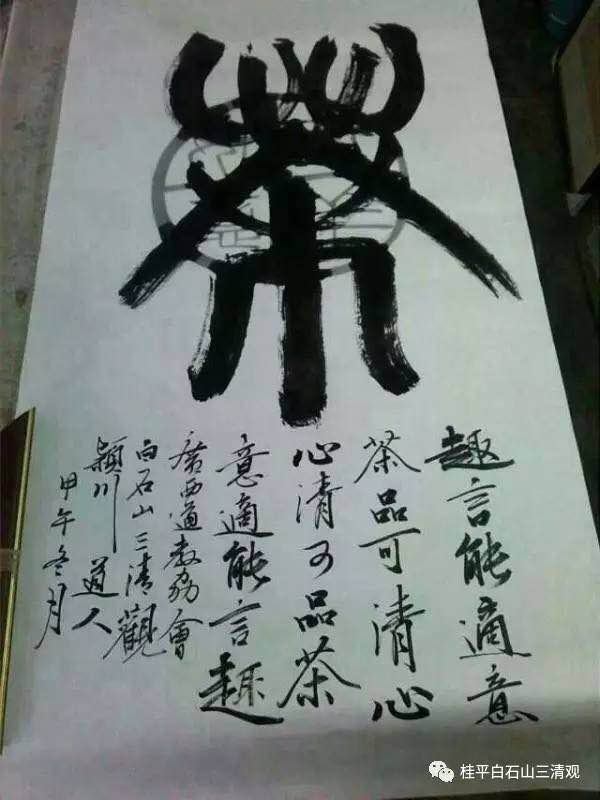 茶
趣言能適意
茶品可清心
心清可品茶
意適能言趣
廣西道教協會
白石山三清觀
潁川道人
甲午冬月
桂平白石山三清观